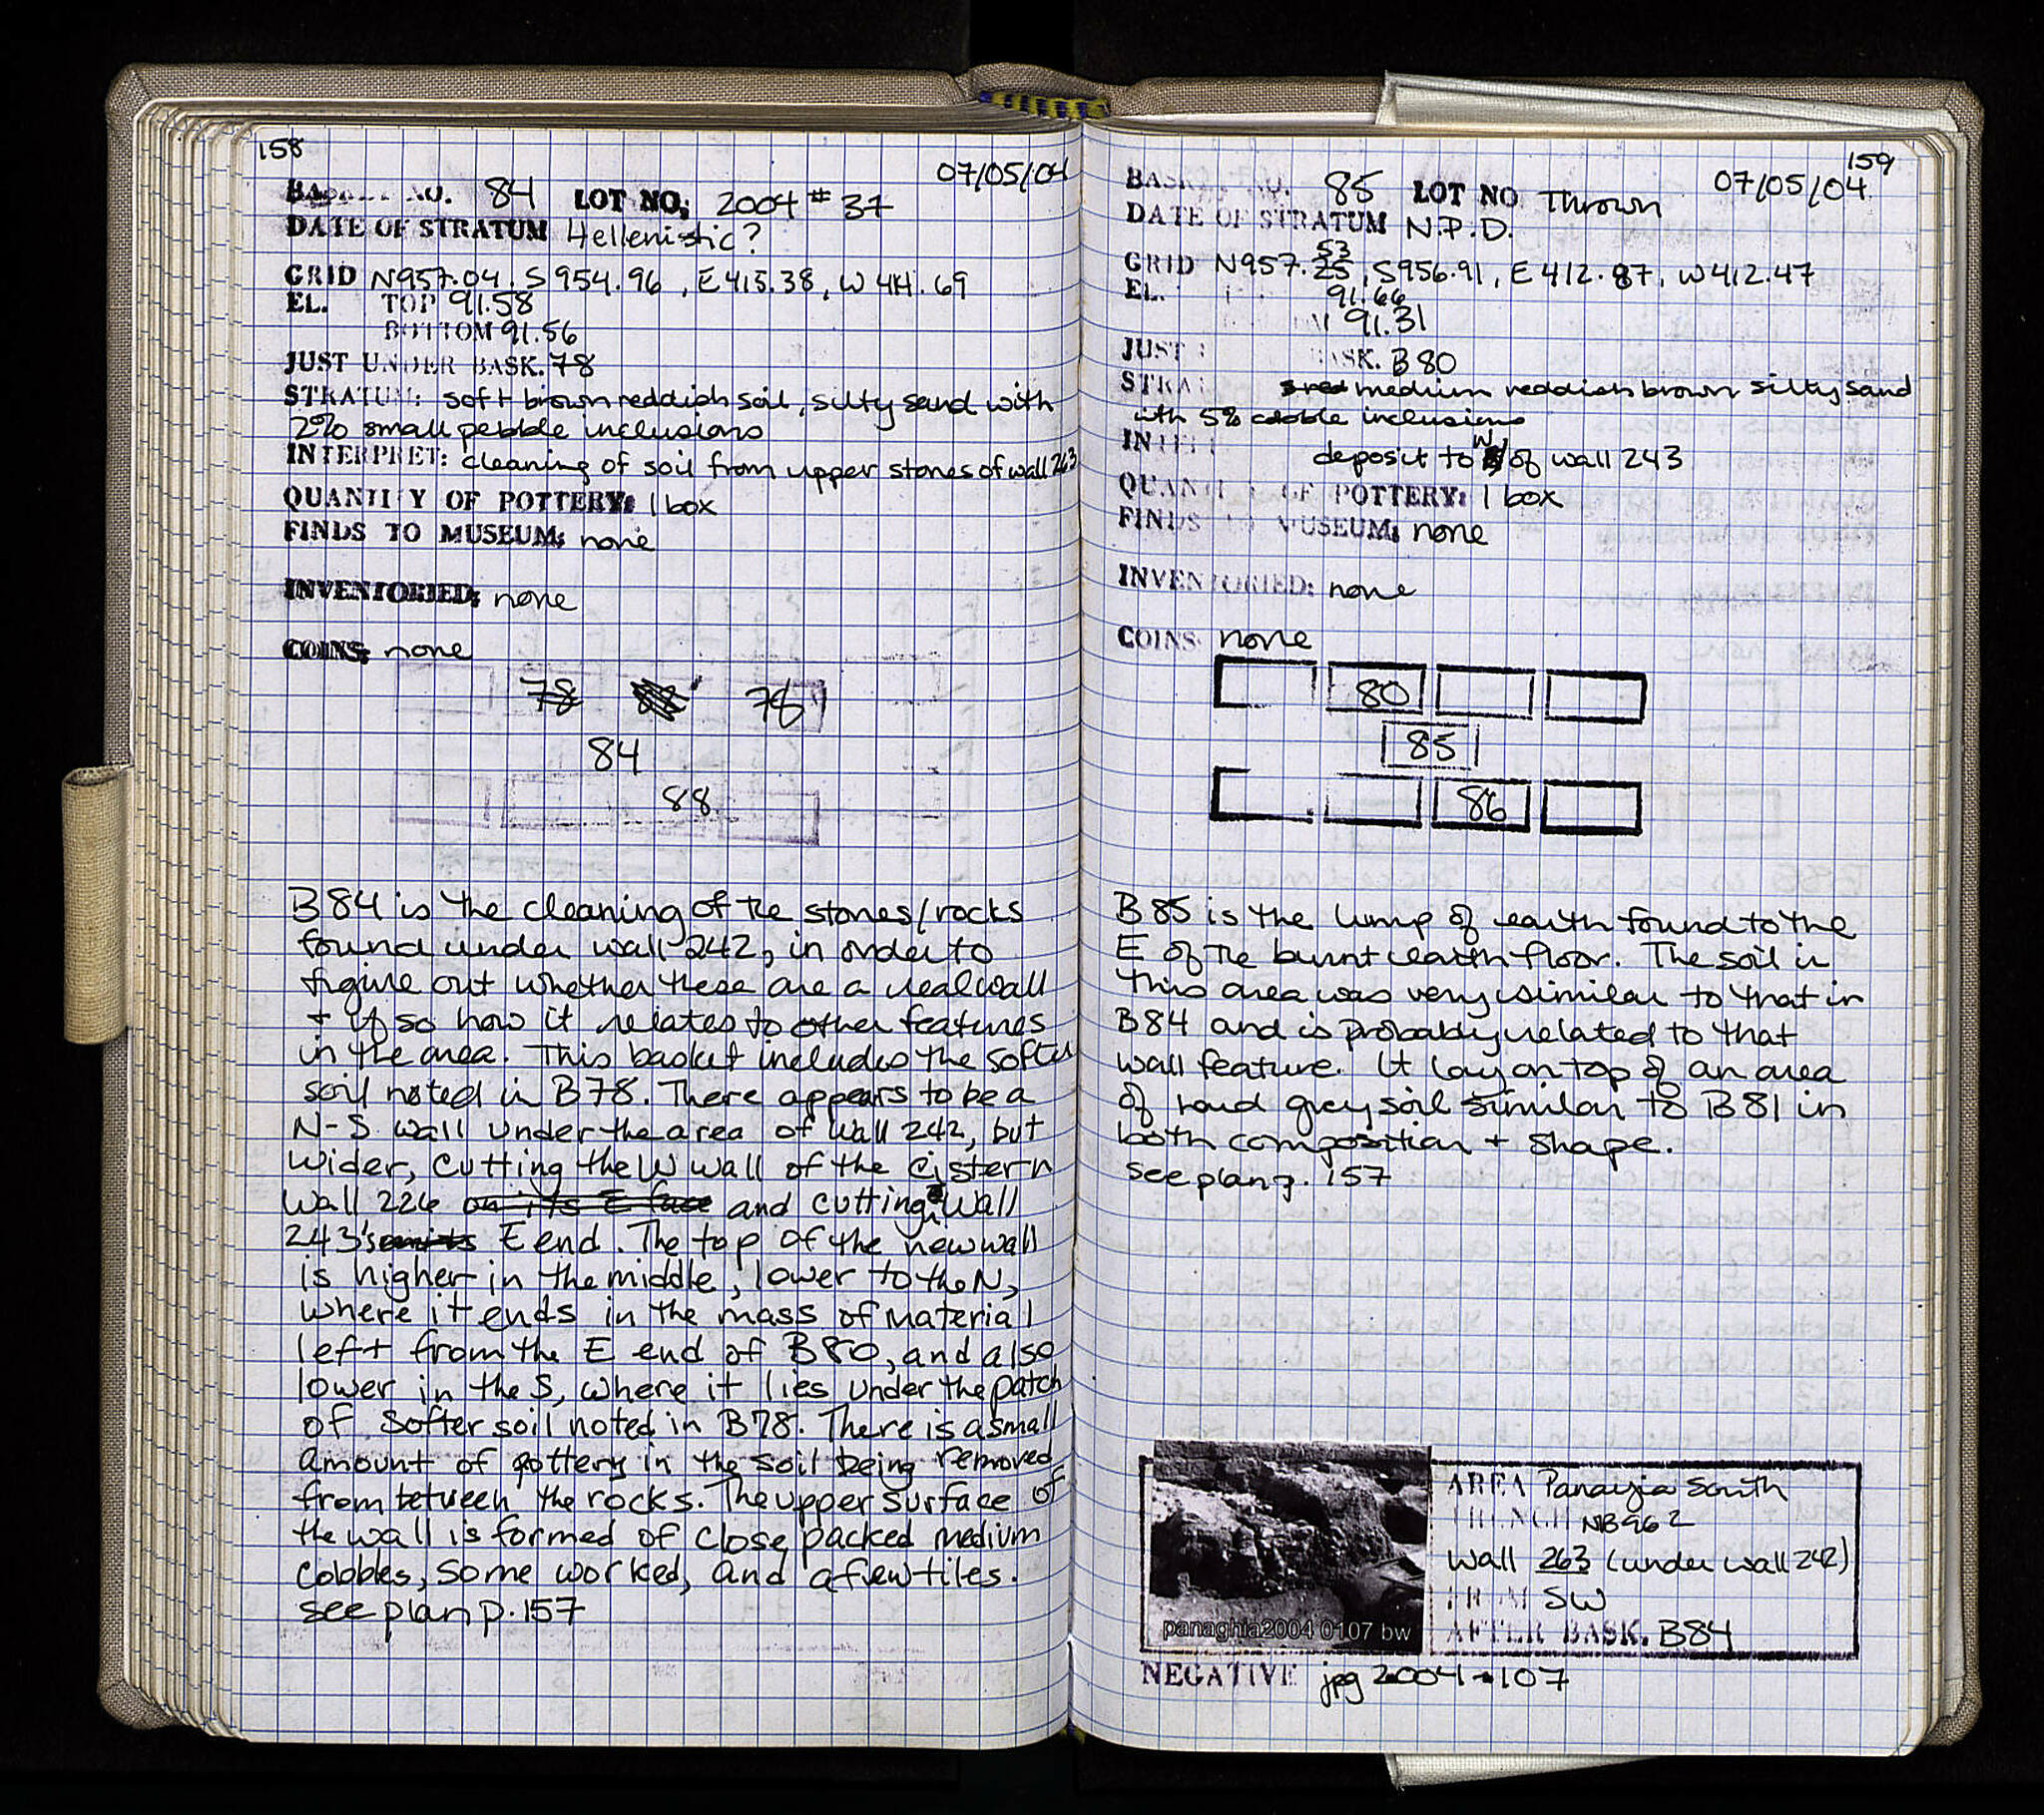 158
07/05/04
BASKET NO. 84 LOT NO; 2004 # 37
DATE OF STRATUM Hellenistic?
GRID N957.04, S954.96, E415.38, W411.69
EL. TOP 91.58
BOTTOM 91.56
JUST UNDER BASK. 78
STRATUM: soft brown reddish soil, silty sand with
2% small pebble inclusions
INTERPRET: cleaning of soil from upper stones of wall 263
QUANTITY OF POTTERY: 1 box
FINDS TO MUSEUM; none
INVENTORIED; none
COINS; none
78 78
84
88
B84 is the cleaning of the stones/rocks
found under wall 242, in order to
figure out whether these are a real wall
+ if so how it relates to other features
in the area. This basket includes the softer
soil noted in B78. There appears to be a
N-S wall under the area of wall 242, but
wider, cutting the W wall of the cistern
wall 226 on its E face and cutting wall
243's E end. The top of the new wall
is higher in the middle, lower to the N,
where it ends in the mass of material
left from the E end of B80, and also
lower in the S, where it lies under the patch
of softer soil noted in B78. There is a small
amount of pottery in the soil being removed
from between the rocks. The upper surface of
the wall is formed of close packed medium
cobbles, some worked, and a few tiles.
see plan p. 157
159
07/05/04
BASKET NO. 85 LOT NO Thrown
DATE OF STRATUM N.P.D.
GRID N957.25 53, S956.91, E412.87, W412.47
EL. 91.66
91.31
JUST BASK. B80
STRA medium reddish brown silty sand
with 5% cobble inclusions
INTE deposit to W of wall 243
QUANTITY OF POTTERY: 1 box
FINDS TO MUSEUM; none
INVENTORIED: none
COINS none
80
85
86
B85 is the lump of earth found to the
E of the burnt earth floor. The soil in
this area was very similar to that in
B84 and is probably related to that
wall feature. It lay on top of an area
of hard grey soil similar to B81 in
both composition + shape.
see plan p. 157
panaghia2004 0107 bw
AREA Panayia South
TRENCH NB962
Wall 263 (under wall 242)
FROM SW
AFTER BASK. B84
NEGATIVE jpg 2004-107